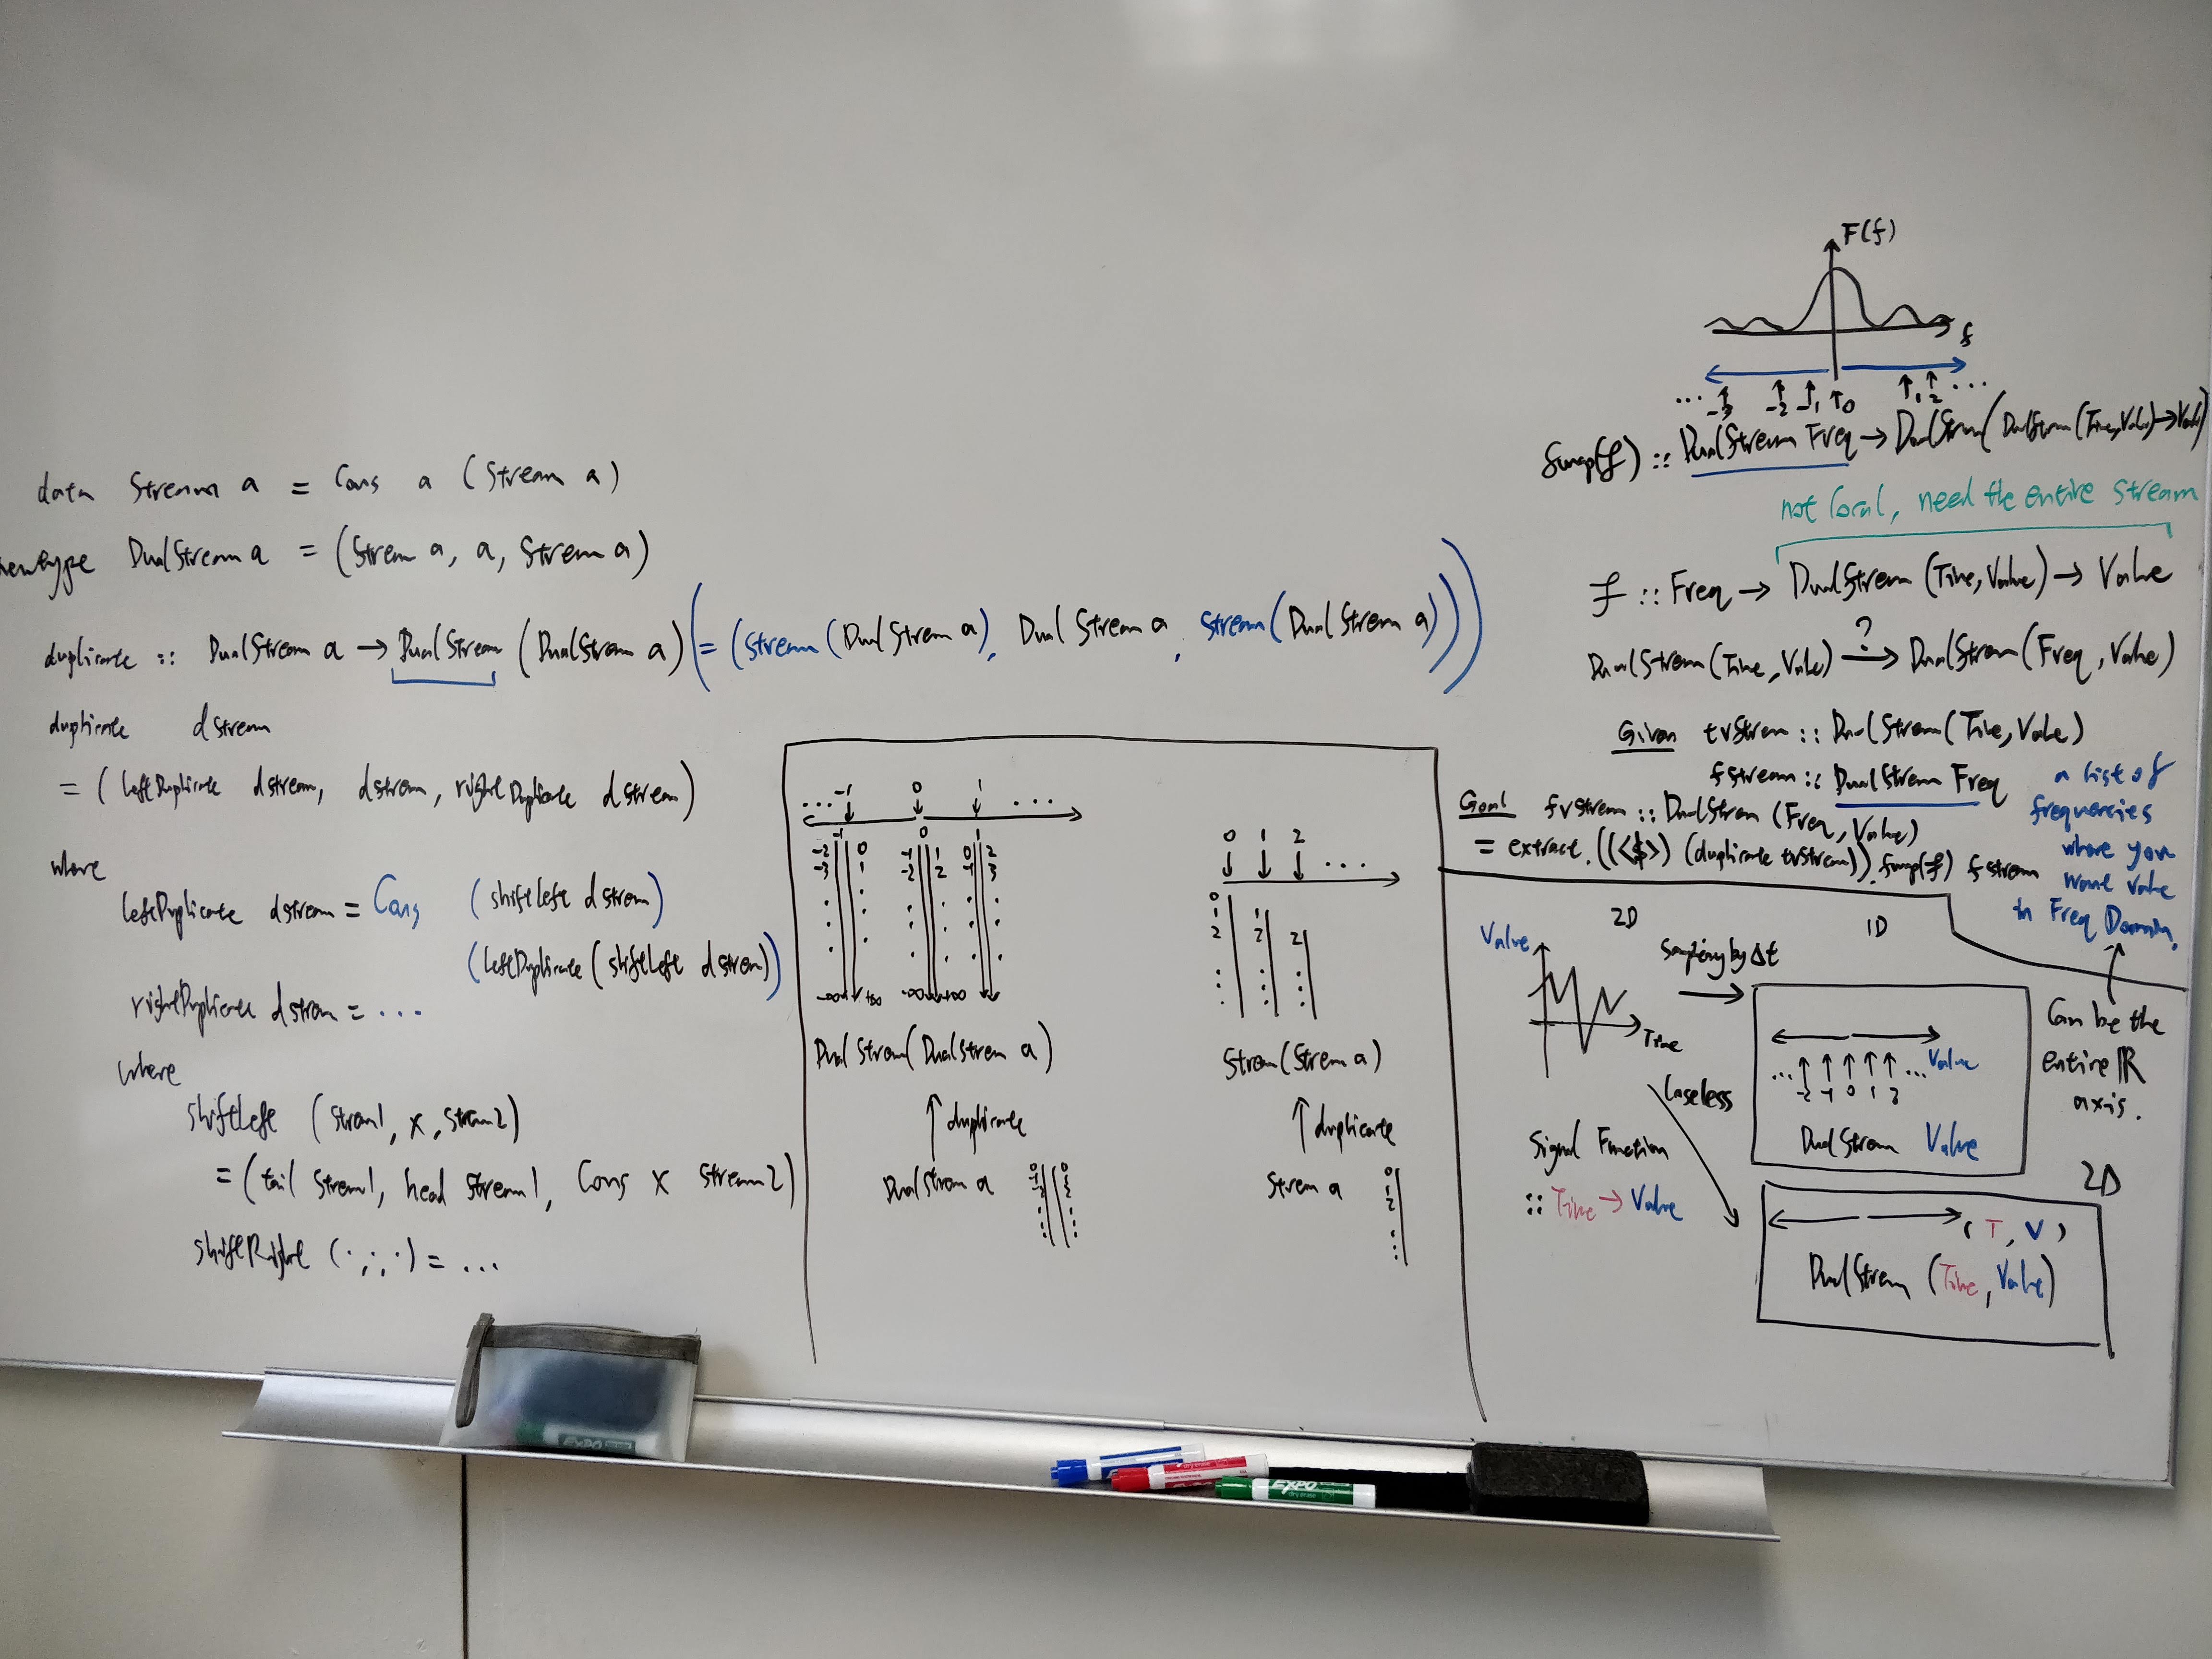 data Stream a = Cons a (Stream a)
newtype DualStream a = (Stream a, a, Stream a)
duplicate :: DualStream a → DualStream (DualStream a) (= (Stream (DualStream a), DualStream a, Stream (DualStream a)))
duplicate dstream
= (leftDuplicate dstream, dstream, rightDuplicate dstream)
where
leftDuplicate dstream = Cons (shiftLeft dstream)
(leftDuplicate (shiftLeft dstream))
rightDuplicate dstream = ...
where
shiftLeft (stream1, x, stream2)
= (tail stream1, head stream1, Cons x stream2)
shiftRight (·,·,·) = ...
... -1 0 1 ...
-1 0 1
-2 0 -1 1 0 2
-3 1 -2 2 -1 3
-∞ +∞ -∞ +∞
DualStream(DualStream a)
↑ duplicate
DualStream a
0 1 2 ...
0
1 1
2 2 2
Stream(Stream a)
↑ duplicate
Stream a
0
1
2
F(f)
f
... -3 -2 -1 0 1 2 ...
fmap(f) :: DualStream Freq → DualStream(DualStream(Time,Value)→Value)
not local, need the entire stream
f :: Freq → DualStream (Time, Value) → Value
DualStream(Time, Value) →? DualStream(Freq, Value)
Given tvStream :: DualStream(Time, Value)
fstream :: DualStream Freq
Goal fvstream :: DualStream (Freq, Value)
= extract.((<$>) (duplicate tvStream)).fmap(f) fstream
a list of
frequencies
where you
want value
in Freq Domain.
Can be the
entire ℝ
axis.
2D
Value
Time
Sampling by Δt
1D
... -2 -1 0 1 2 ... Value
DualStream Value
Loseless
Signal Function
:: Time → Value
2D
(T, V)
DualStream (Time, Value)
EXPO
EXPO
dry erase